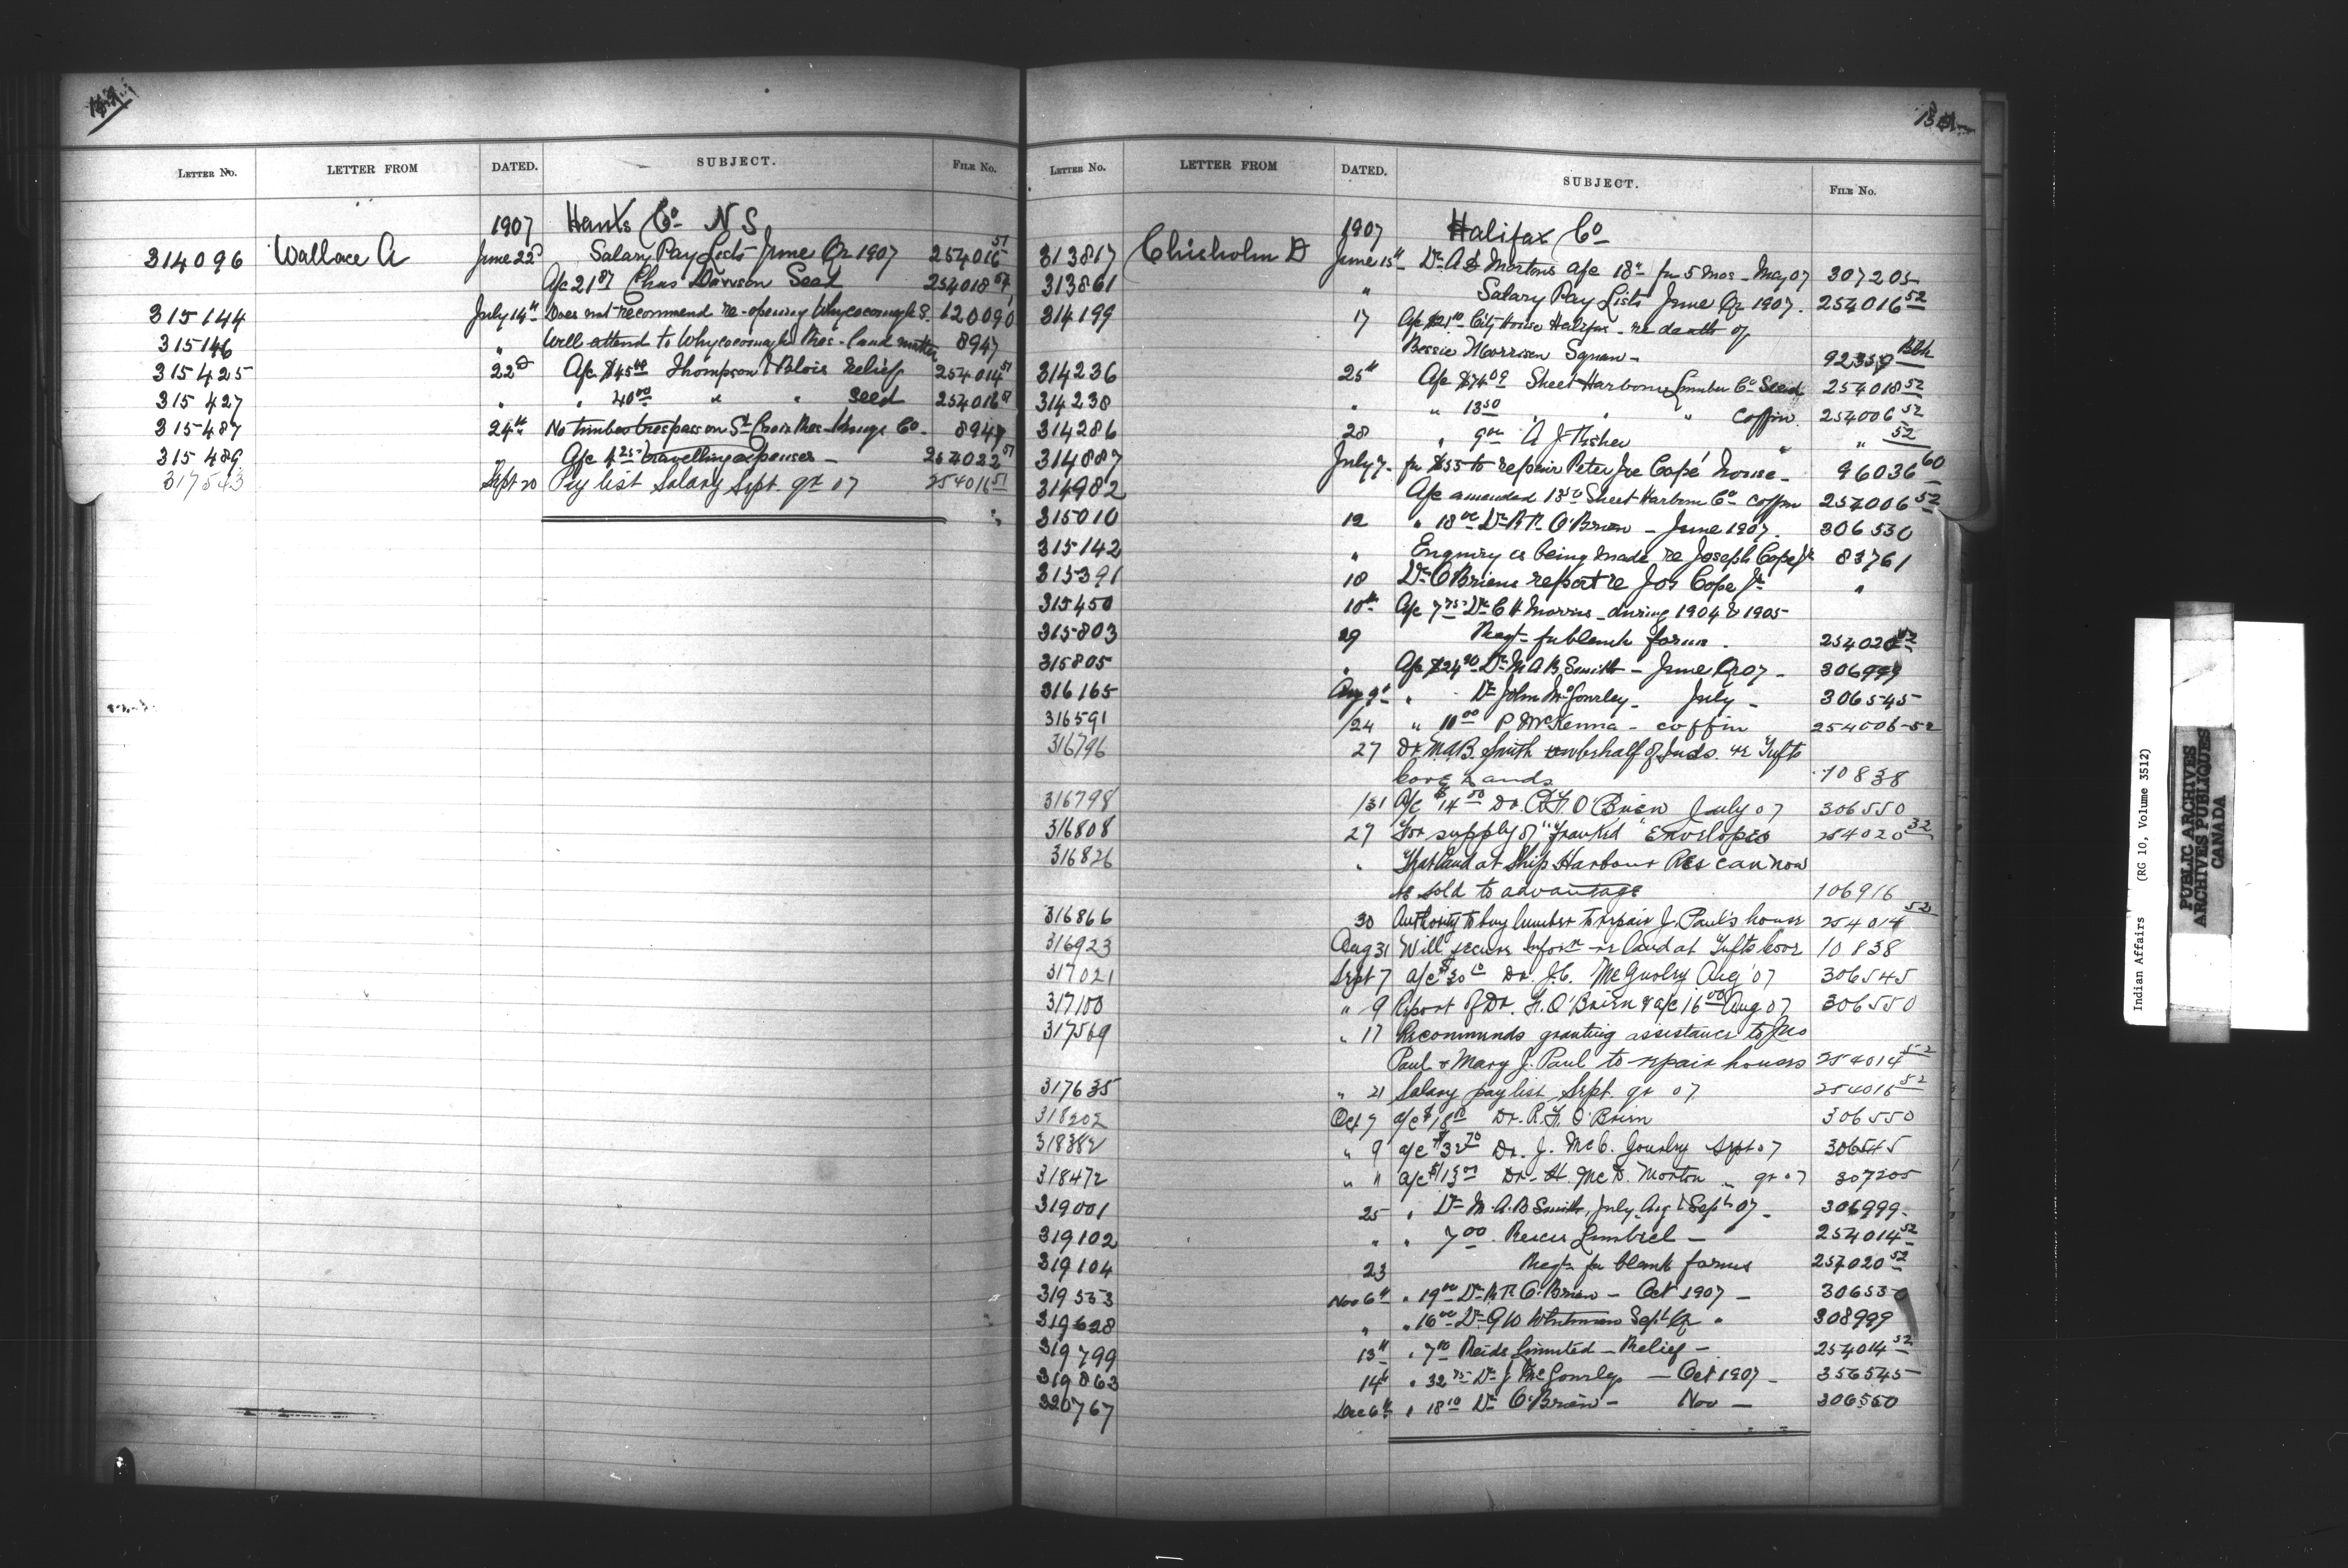 LETTER NO. LETTER FROM DATED. SUBJECT. FILE NO.
1907 Hants Co N S
314096 Wallace A June 22d Salary Pay Lists June Qr 1907 254016 51
A/c 21 87 Chas Dawson Seed 254018 51
315144 July 14th Does not recommend re-opening Whycocomagh S. 120090
315146 " Will attend to Whycocomagh Res - land matter 8947
315425 22d A/c $45 00 Thompson & Blois relief 254014 51
315427 " " 40 00 " " seed 254016 51
315487 24th No timber trespass on St Croix Res - Co - 8947
315489 " A/c 4 25 travelling expenses - 254022 51
317543 Sept 20 Pay list Salary Sept. qr 07 254016 51
LETTER NO. LETTER FROM DATED. SUBJECT. FILE NO.
1907 Halifax Co
313817 Chisholm D June 15th Dr A Mortons a/c 18 fr 5 mos - May 07 307205
313861 " Salary Pay Lists June Qr 1907. 254016 52
314199 17 A/c $21 City Home Halifax - re death of
Bessie Morrison Squaw - Blk
314236 25th A/c $74 09 Sheet Harbour Lumber Co Seed 254018 52
314238 " " 13 50 " " " coffin. 254006 52
314286 28 " 9 00 A J Fisher " " 52
314887 July 7 - for $55 to repair Peter Joe Cope' house - 96036 60
314982 A/c amended 13 50 Sheet Harbour Co coffin 254006 52
315010 12 " 18 00 Dr O'Brien - June 1907. 306550
315142 " Enquiry is being made re Joseph Cope Jr 83761
315391 18 Dr O'Briens report re Jos Cope Jr "
315450 18th A/c 7 75 Dr C H Morris - during 1904 & 1905
315803 29 Reqt - for blank forms. 254020 52
315805 " A/c $24 Dr M A B Smith - June Qr 07 - 306999
316165 Aug 9th " Dr John McGourley - July - 306545
316591 /24 " 10 00 P McKenna - coffin 254006-52
316796 27 Dr. M.A.B. Smith on behalf of Inds. re Tufts
Cove Lands 10838
316798 /31 a/c $14 00 Dr. R.F. O'Brien July 07 306550
316808 27 For supply of "Franked" Envelopes 254020 52
316826 " That land at Ship Harbour Res can now
be sold to advantage 106916
316866 30 Authority to buy lumber to repair J. Paul's house 254014 52
316923 Aug 31 Will secure Infor re land at Tufts Cove 10838
317021 Sept 7 a/c $30 10 Dr. J.C. McGuolry Aug '07 306545
317100 " 9 Report of Dr. F. O'Brien & a/c 16 00 Aug 07 306550
317569 " 17 Recommends granting assistance to Jno
Paul & Mary J. Paul to repair houses 254014 52
317635 " 21 Salary pay list Sept. qr 07 254016 52
318202 Oct 7 a/c $18 Dr. R.F. O'Brien 306550
318382 " 9 a/c $32 70 Dr. J. McC. Gourley Sept 07 306545
318472 " " a/c $15 00 Dr. H. McD. Morton " qr 07 307205
319001 25 " Dr M. A. B Smith, July, Aug & Sept 07 - 306999.
319102 " " 7 00 Limited - 254014 52
319104 23 Reqt - for blank forms 254020 52
319553 Nov 6th " 19 00 Dr O'Brien - Oct 1907 - 306550
319628 " " 16 00 Dr G W Whitman Sept Qr " 308999
319799 13th " 7 10 Reids Limited - Relief - 254014 52
319863 14th " 32 75 Dr J McGourley - Oct 1907 - 356545
320767 Dec 6th " 18 10 Dr O'Brien - Nov - 306550
Indian Affairs (RG 10, Volume 3512)
PUBLIC ARCHIVES
ARCHIVES PUBLIQUES
CANADA